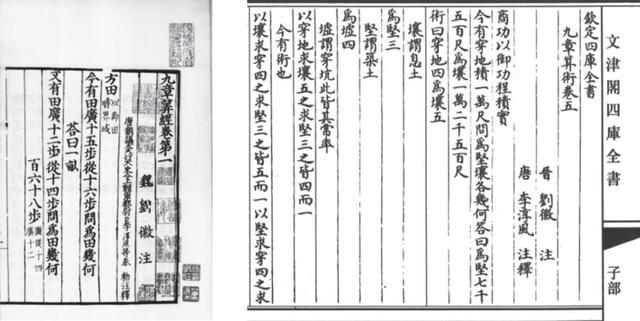 九章筭經卷第一
魏 劉 徽 注
唐朝議大夫行太史令上輕車都尉臣李淳風等奉 勅注釋
方田以御田疇界域
今有田廣十五步從十六步問爲田幾何
荅曰一畝
又有田廣十二步從十四步問爲田幾何
百六十八步圖從十四廣十二
文津閣四庫全書
子部
欽定四庫全書
九章算術卷五
晉 劉徽 注
唐 李淳風 注釋
商功以御功程積實
今有穿地積一萬尺問爲堅壤各幾何答曰爲堅七千
五百尺爲壤一萬二千五百尺
術曰穿地四爲壤五
壤謂息土
爲堅三
堅謂築土
爲墟四
墟謂穿坑此皆其常率
以穿地求壤五之求堅三之皆四而一
今有術也
以壤求穿四之求堅三之皆五而一以堅求穿四之求